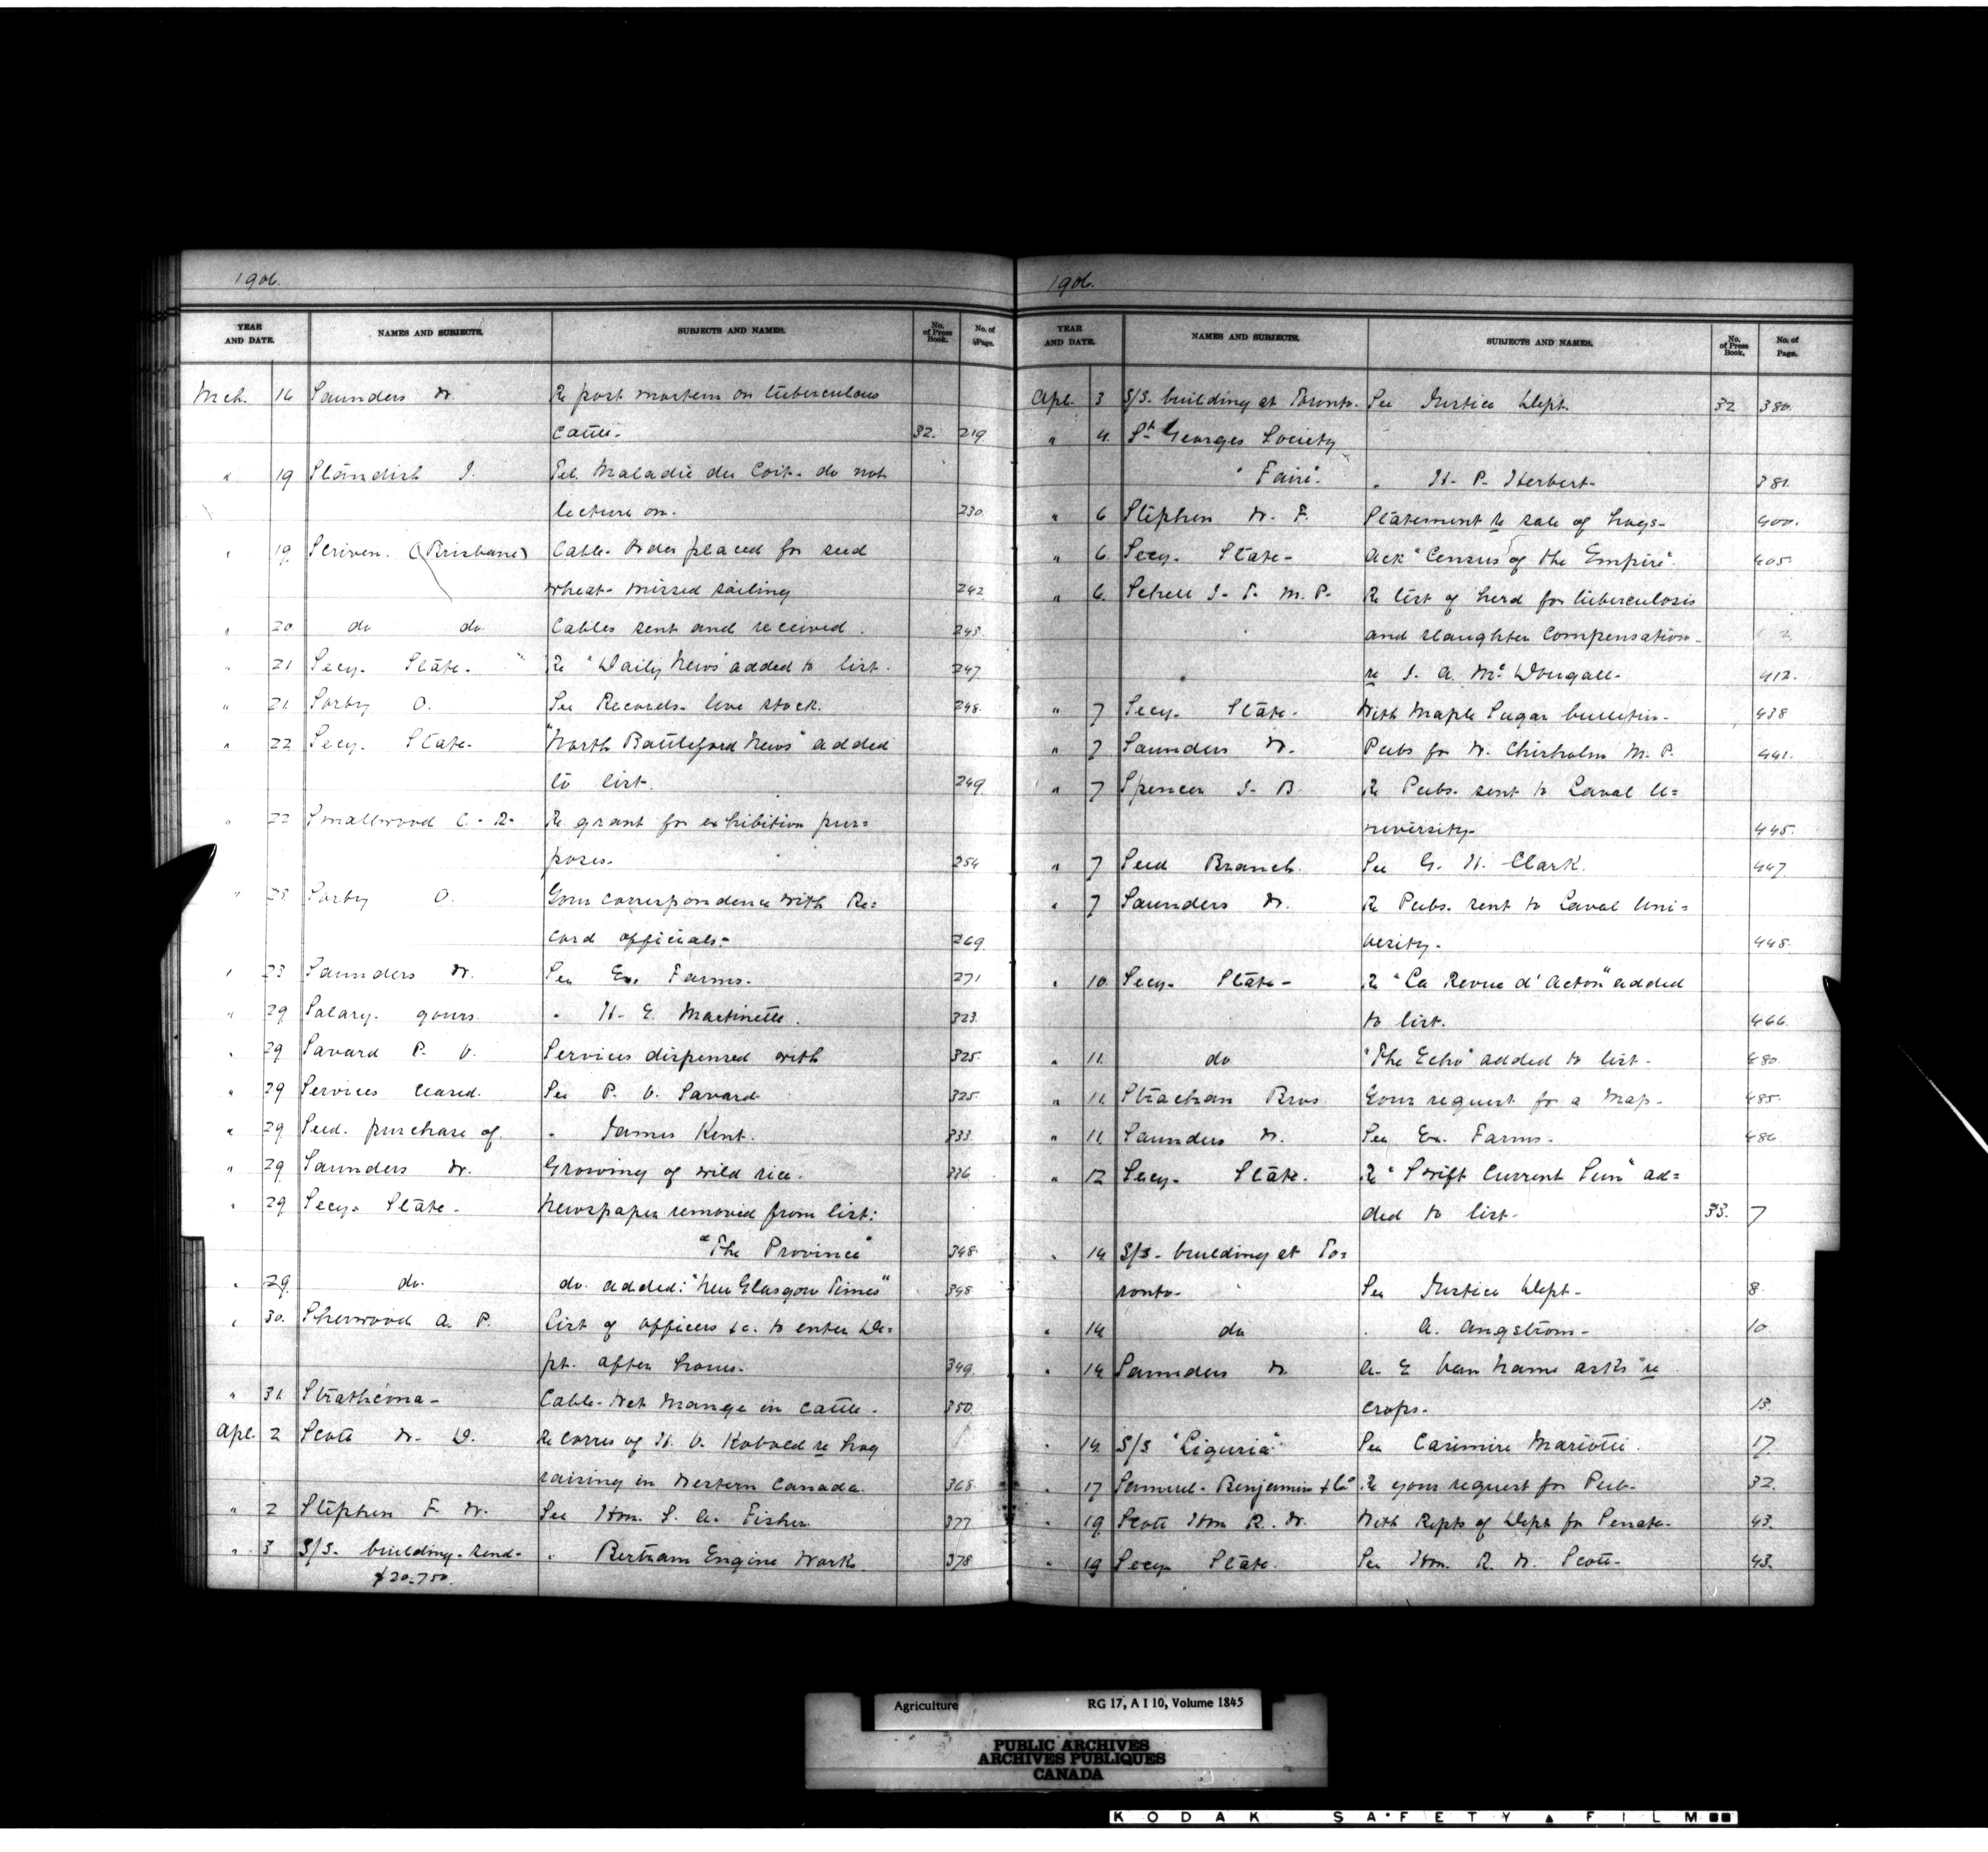 1906.
YEAR AND DATE. NAMES AND SUBJECTS. SUBJECTS AND NAMES. No. of Press Book. No. of Page.
Mch. 16 Saunders W. Re post mortem on tuberculous
cattle- 32. 219
" 19 Standish J. Tel. Maladie du Coit- do not
lecture on. 230.
" 19 Scriven. (Brisbane) Cable- Order placed for seed
wheat- missed sailing 242
" 20 do do. Cables sent and received. 243.
" 21 Secy- State- Re "Daily News" added to list. 247
" 21 Sorby O. See Records- live stock. 248.
" 22 Secy- State- "North Battleford News" added
to list. 249.
" 22 Smallwood C. R- Re grant for exhibition pur=
poses- 254
" 23 Sorby O. Your correspondence with Re=
cord officials- 269.
" 23 Saunders W. See Ex. Farms. 271
" 29 Salary- yours. " H. E. Martinette. 323.
" 29 Savard P. V. Services dispensed with 325.
" 29 Services ceased. See P. V. Savard 325.
" 29 Seed. purchase of. " James Kent. 333.
" 29 Saunders W. Growing of wild rice. 336
" 29 Secy. State- Newspaper removed from list:
"The Province" 348.
" 29. do. do. added: "New Glasgow Times" 348
" 30. Sherwood A. P. List of officers &c. to enter De=
pt. after hours- 349.
" 31 Strathcona- Cable- Wet Mange in cattle. 350
Apl. 2 Scott W. D. Re corres of H. V. re hog
raising in Western Canada. 368.
" 2 Stephen F. W. See Hon. S. A. Fisher 377
" 3 S/S- building- tend- " Bertram Engine Works. 378
$20-750.
1906.
YEAR AND DATE. NAMES AND SUBJECTS. SUBJECTS AND NAMES. No. of Press Book. No. of Page.
Apl. 3 S/S. building at Toronto. See Justice Dept. 32 380.
" 4. St Georges Society
"Faire". " H. P. Herbert- 381.
" 6 Stephen W. F. Statement re sale of hogs- 400.
" 6. Secy- State- Ack "Census of the Empire". 405.
" 6. Schell J. T. M. P. Re list of herd for tuberculosis
and slaughter compensation-
re J. A. McDougall- 412.
" 7 Secy- State- With Maple Sugar bulletin- 438
" 7 Saunders W. Pubs for W. Chisholm M. P. 441.
" 7 Spencer J. B. Re Pubs. sent to Laval U=
niversity- 445.
" 7 Seed Branch. See G. H. Clark. 447.
" 7 Saunders W. Re Pubs. sent to Laval Uni=
versity. 448.
" 10. Secy- State- Re "La Revue d'Acton" added
to list. 466.
" 11. do "The Echo" added to list. 480.
" 11. Strachan Bros. Your request for a Map- 485.
" 11. Saunders W. See Ex. Farms- 486
" 12 Secy- State. Re "Swift Current Sun" ad=
ded to list- 33. 7
" 14 S/S- building at To=
ronto- See Justice Dept- 8.
" 14 do " A. Angstrom- 10
" 14 Saunders W. A. E Van Name asks re
crops- 13.
" 14. S/S "Liguria" See Casimire Mariotti. 17.
" 17 Samuel- Benjamin & Co Re your request for Pub- 32.
" 19 Scott Hon R. W. With Repts of Dept for Senate- 43.
" 19 Secy State. See Hon. R. W. Scott- 43.
Agriculture RG 17, A I 10, Volume 1845
PUBLIC ARCHIVES
ARCHIVES PUBLIQUES
CANADA
KODAK SAFETY FILM